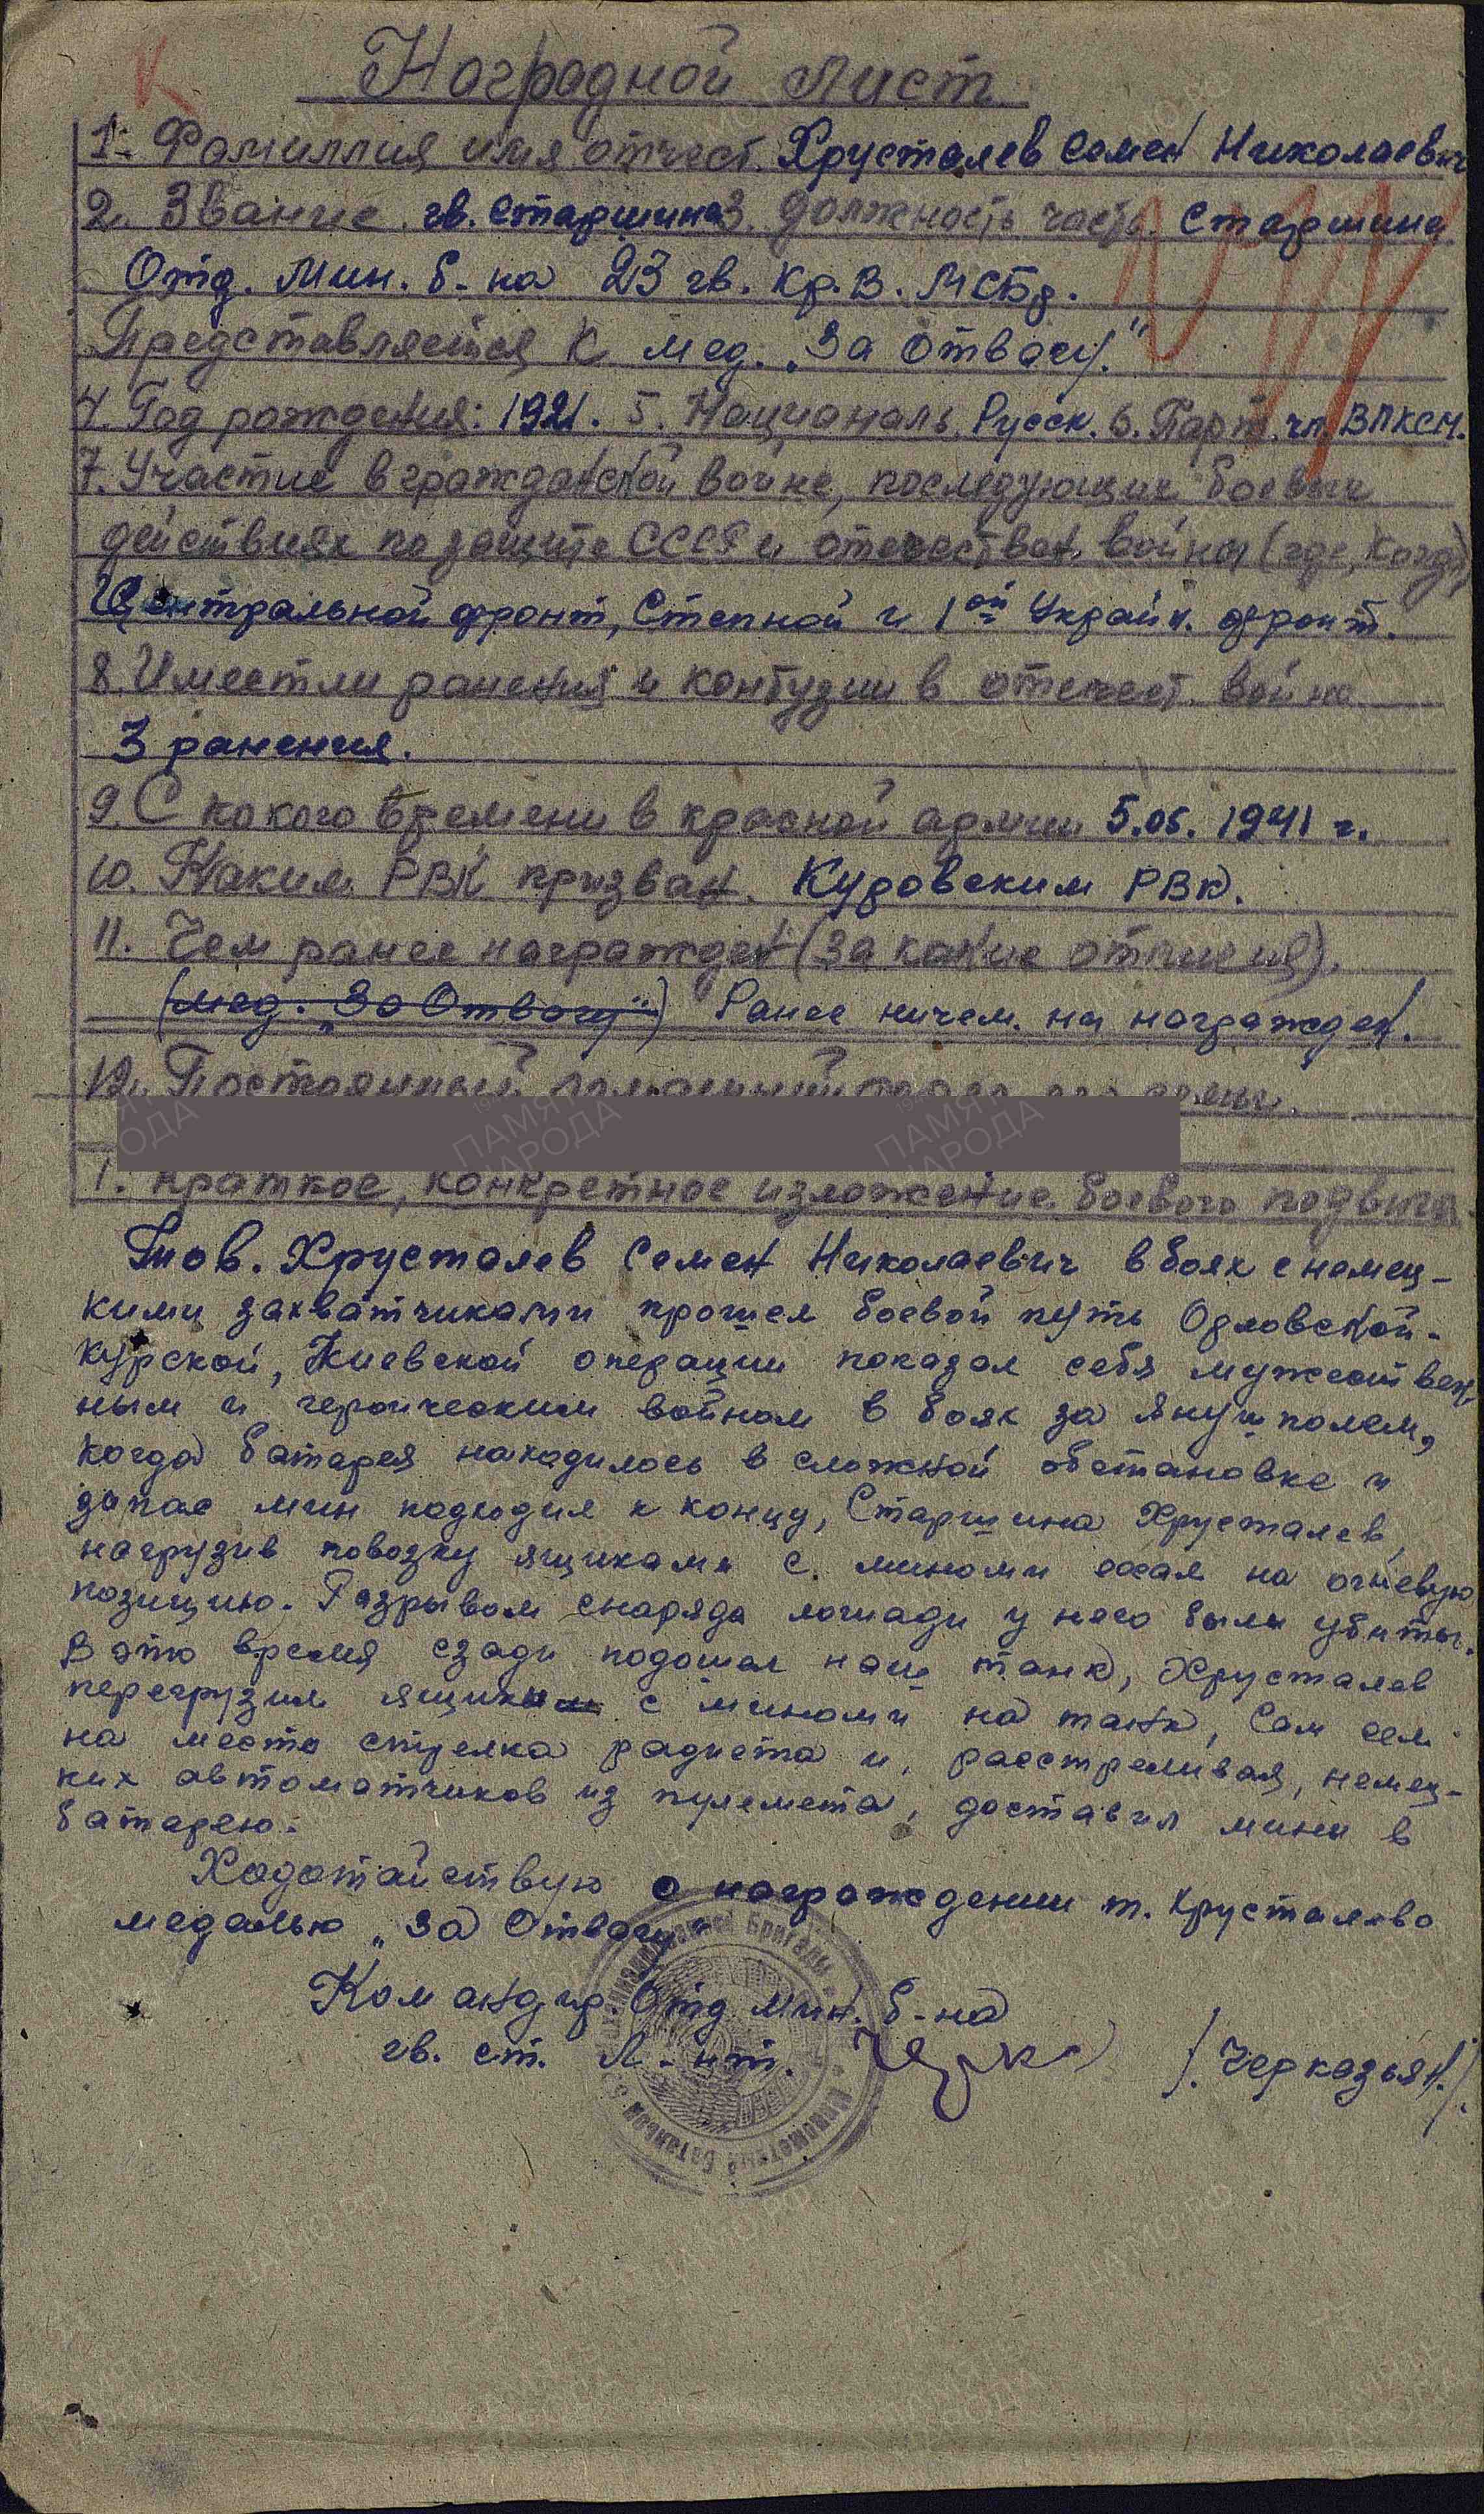 Наградной лист
1. Фамиллия имя отчест. Хрусталев Семен Николаевич
2. Звание. гв. старшина 3. должность часть. Старшина
Отд. Мин. б-на 23 гв. Кр.В. МСБр.
Представляется к мед. „За Отвагу."
4. Год рождения: 1921. 5. Националь. Русск. 6. Парт. чл. ВЛКСМ.
7. Участие в гражданской войне, последующих боевых
действиях по защите СССР и отечествен. войны (где, когда)
Центральной фронт, Степной и 1ой Украйн. фронт.
8. Имеет ли ранения и контузии в отечест. войне
3 ранения.
9. С какого времени в красной армии 5.05. 1941 г.
10. Каким РВК призван. Кировским РВК.
11. Чем ранее награжден (за какие отличия).
(мед. „За Отвагу") Ранее ничем не награжден.
12. Постоянный домашний адрес его семьи.
1. Краткое, конкретное изложение боевого подвига
Тов. Хрусталев Семен Николаевич в боях с немец-
кими захватчиками прошел боевой путь Орловской-
Курской, Киевской операции показал себя мужествен-
ным и героическим войном в боях за Янушполем,
когда батарея находилось в сложной обстановке и
запас мин подходил к концу, Старшина Хрусталев,
нагрузив повозку ящиками с минами ехал на огневую
позицию. Разрывом снаряда лошади у него были убиты.
В это время сзади подошел наш танк, Хрусталев
перегрузил ящики с минами на танк, Сам сел
на место стрелка радиста и, расстреливая, немец-
ких автоматчиков из пулемета, доставил мины в
батарею.
Ходатайствую о награждении т. Хрусталева
медалью „За Отвагу"
Командир. Отд. Мин. б-на
гв. ст. Л-нт. /. Черказьян./.
Минометный батальон
бригады
ПАМЯТЬ НАРОДА
ЦАМО.РФ